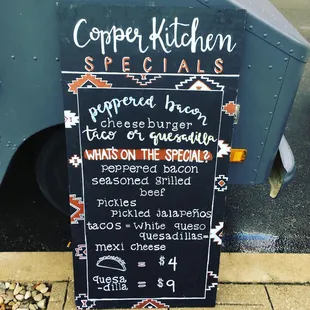 Copper Kitchen
SPECIALS
peppered bacon
cheeseburger
taco or quesadilla
WHAT'S ON THE SPECIAL?
peppered bacon
seasoned grilled
beef
pickles
pickled jalapeños
tacos = white queso
quesadillas =
mexi cheese
= $4
quesa
-dilla = $9